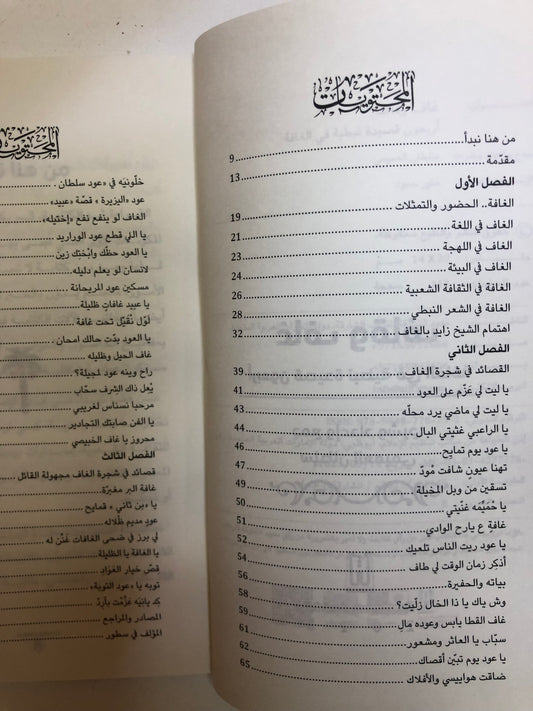 المحتويات
من هنا نبدأ.....9
مقدّمة.....13
الفصل الأول
الغافة.. الحضور والتمثلات.....19
الغاف في اللغة.....21
الغاف في اللهجة.....23
الغاف في البيئة.....24
الغافة في الثقافة الشعبية.....26
الغافة في الشعر النبطي.....28
اهتمام الشيخ زايد بالغاف.....32
الفصل الثاني
القصائد في شجرة الغاف.....39
يا ليت لي عَزّم على العود.....41
يا ليت لي ماضي يرد محلّه.....43
يا الراعبي غثيتي البال.....44
يا عود يوم تمايح.....46
تهنا عيونٍ شافت مُودّ.....47
تسقين من وبل المخيلة.....49
يا حْمَيْمَه غنّيتي.....50
غافةٍ ع يارح الوادي.....51
يا عود ريت الناس تلعيك.....52
أذكر زمان الوقت لي طاف.....54
بياته والحفيرة.....56
وش ياك يا ذا الخال زلّيت؟.....58
غاف القطا يابس وعوده مالِ.....59
سبّاب يا العاثر ومشعور.....61
يا عود يوم تبيّن أقصاك.....62
ضاقت هواييسي والأفلاك.....65
المحتويات
خلّونيَه في «عود سلطان.
عود «البزيرة» قصّة «عبيد»
الغاف لو ينفع نفع «إختيله»
يا اللي قطع عود الوراريد
يا العود حظّك وابْختك زين
لانسان لو يعلم دليله
مسكين عود المريحانة
يا عبيد غافاتٍ ظليلة
لوّل نْقَيّل تحت غافة
يا العود بدّت حالك امحان
غاف الحيل وظليله
راح وينه عود لمجيلة؟
يُعل ذاك الشرف سحّاب
مرحبا نسناس لغريبي
يا الغاف صابتك التجادير
محروز يا غاف الخبيصي
الفصل الثالث
قصائد في شجرة الغاف مجهولة القائل
غافة البر مغبرّة
يا «بن ثاني» قمايح
عودٍ مديم ظْلاله
لي برز في ضحى الغافات غنّن له
يا الغافة يا الظليلة
قصْ خيار العْوَاد
توبه يا «عود التوبة»
كد يانيَه عَزّمت بأرِدّ
المصادر والمراجع
المؤلف في سطور